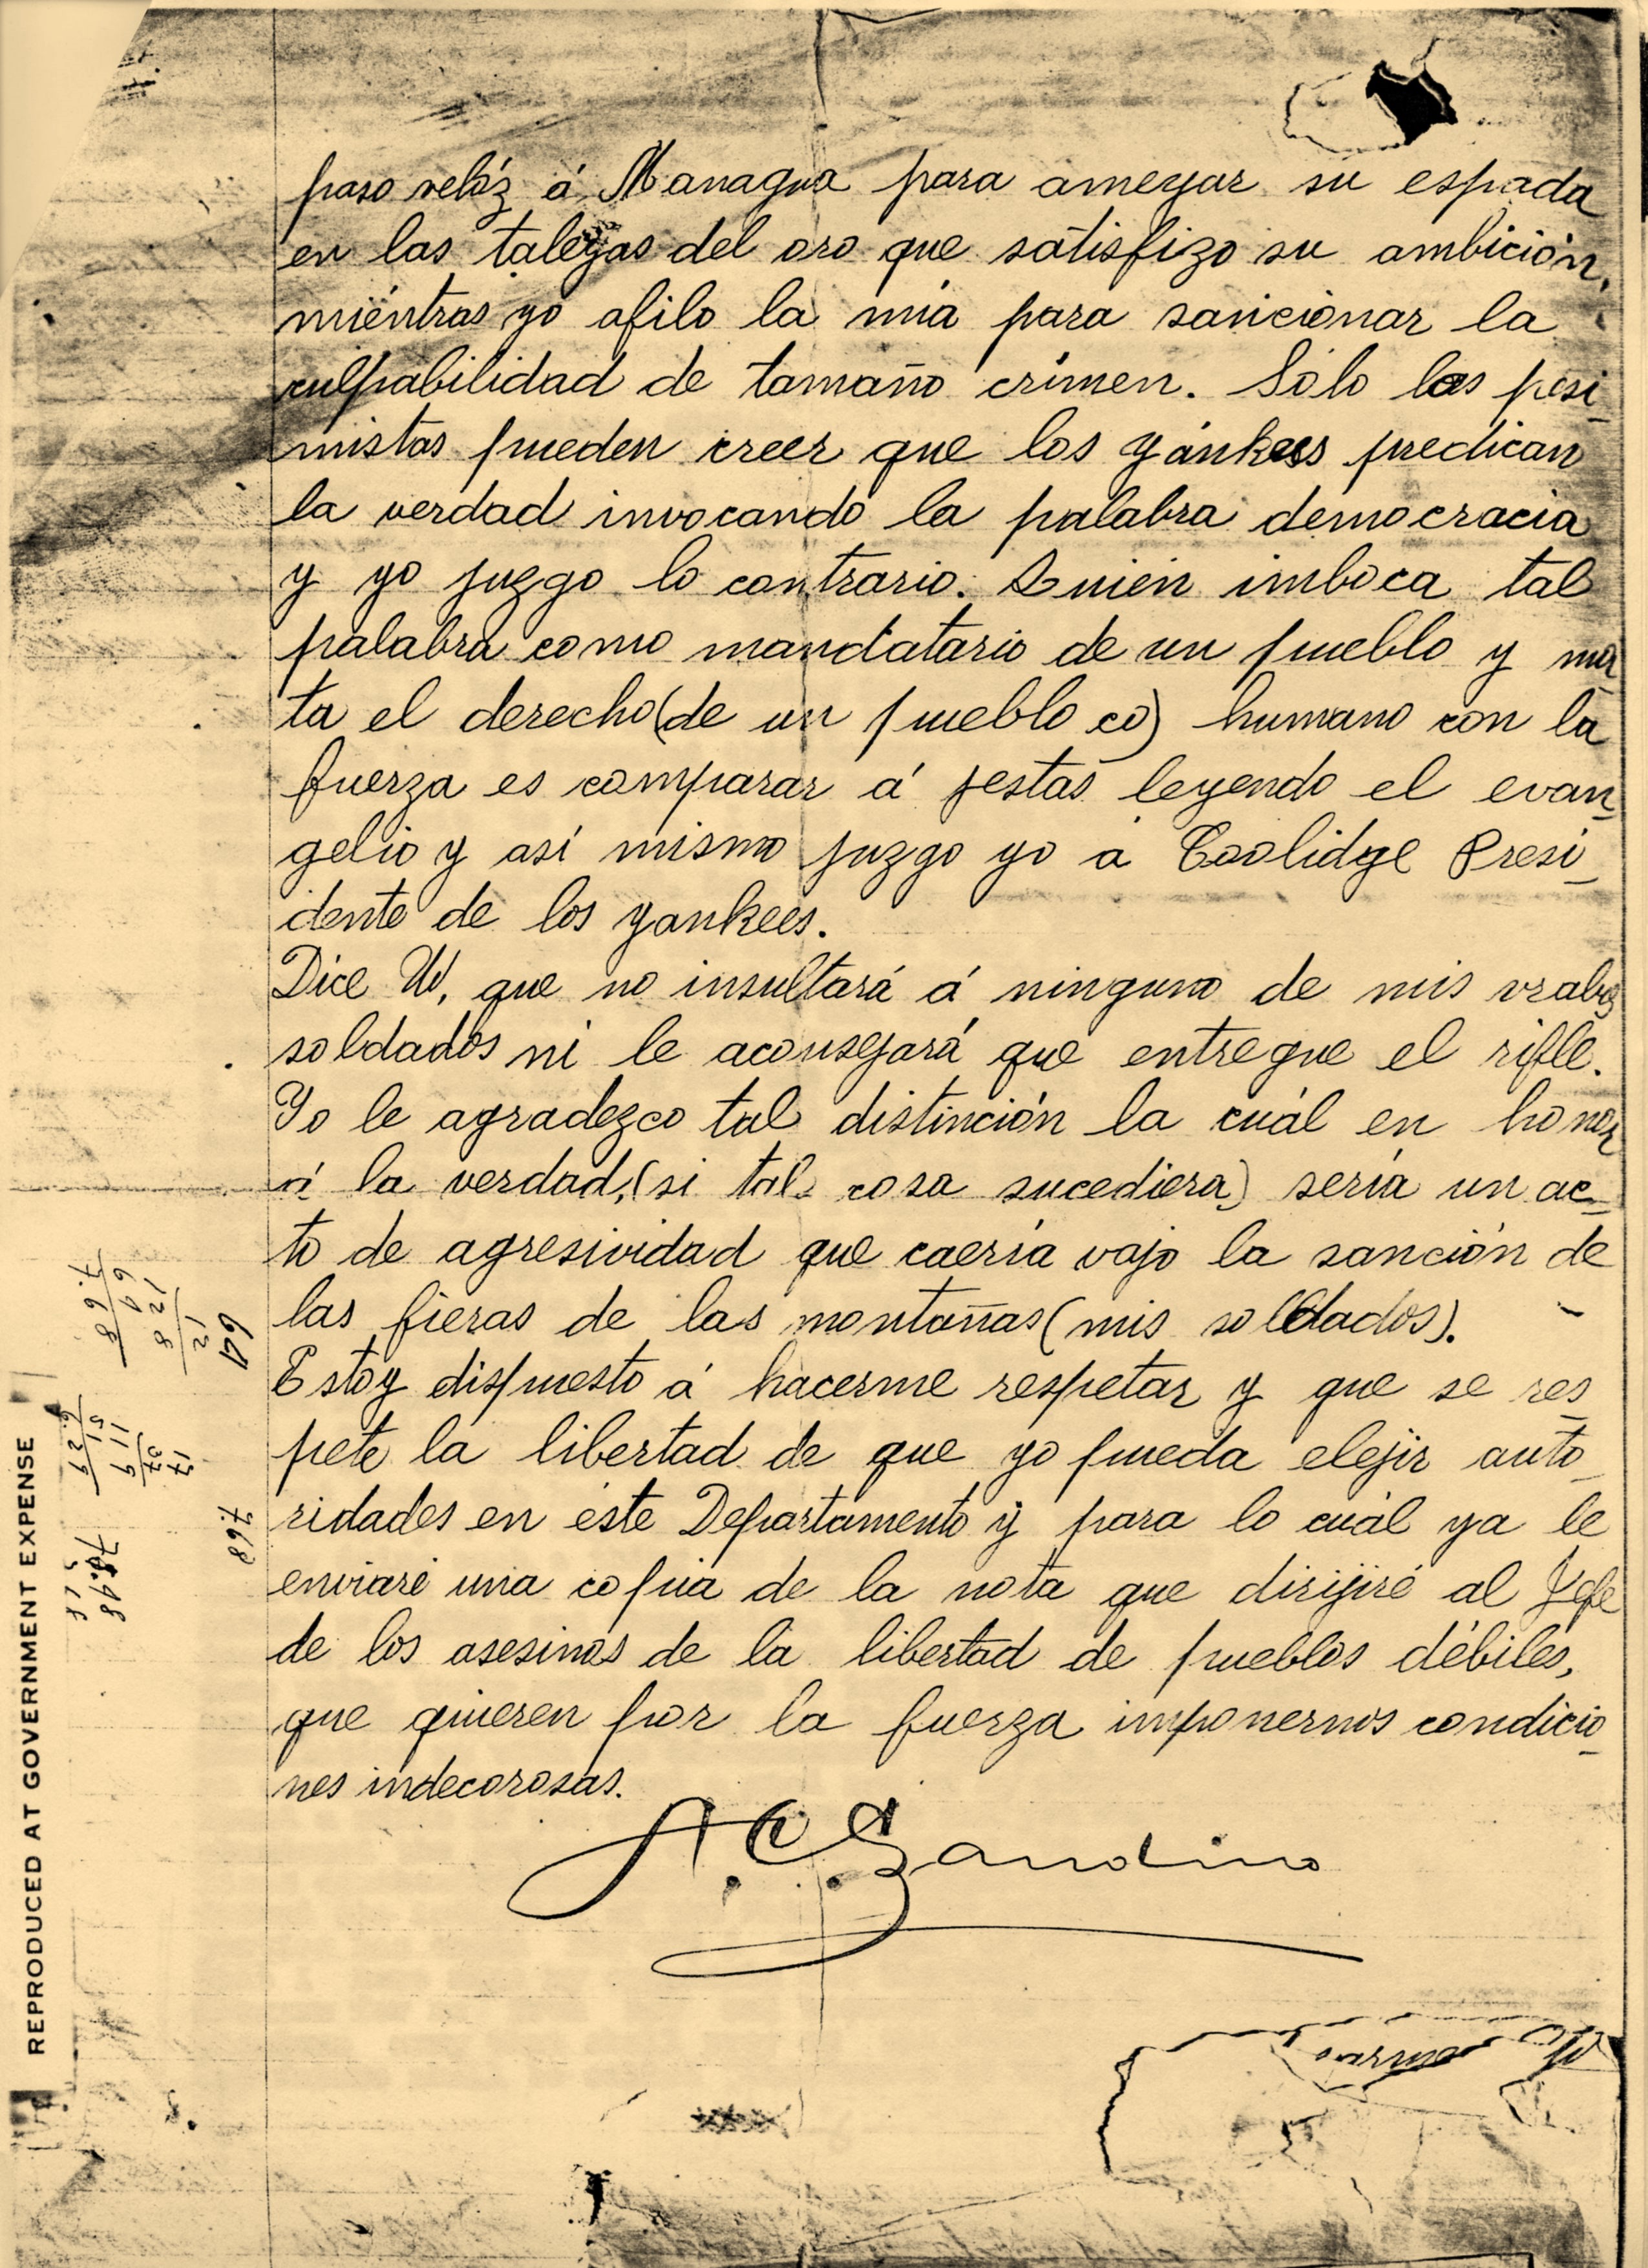 paso velóz á Managua para ameyar su espada
en las talegas del oro que satisfizo su ambición,
miéntras yo afilo la mia para sancionar la
culpabilidad de tamaño crimen. Sólo los pesi-
mistas pueden creer que los yánkees predican
la verdad invocando la palabra democracia
y yo juzgo lo contrario. Quien imboca tal
palabra como mandatario de un pueblo y ma-
ta el derecho (de un pueblo co) humano con la
fuerza es comparar á jestas leyendo el evan-
gelio y así mismo juzgo yo á Coolidge Presi-
dente de los yankees.
Dice Ud, que no insultará á ninguno de mis vrabos
soldados ni le aconsejará que entregue el rifle.
Yo le agradezco tal distinción la cuál en honor
á la verdad, (si tal cosa sucediera) sería un ac-
to de agresividad que caería vajo la sanción de
las fieras de las montañas (mis soldados).
Estoy dispuesto á hacerme respetar y que se res-
pete la libertad de que yo pueda elejir auto-
ridades en éste Departamento y para lo cuál ya le
enviaré una copia de la nota que dirijiré al Jefe
de los asesinos de la libertad de pueblos débiles,
que quieren por la fuerza imponernos condicio-
nes indecorosas.
A. C. Sandino
REPRODUCED AT GOVERNMENT EXPENSE
64
12
128
64
7.68
17
37
119
51
6.29
7.68